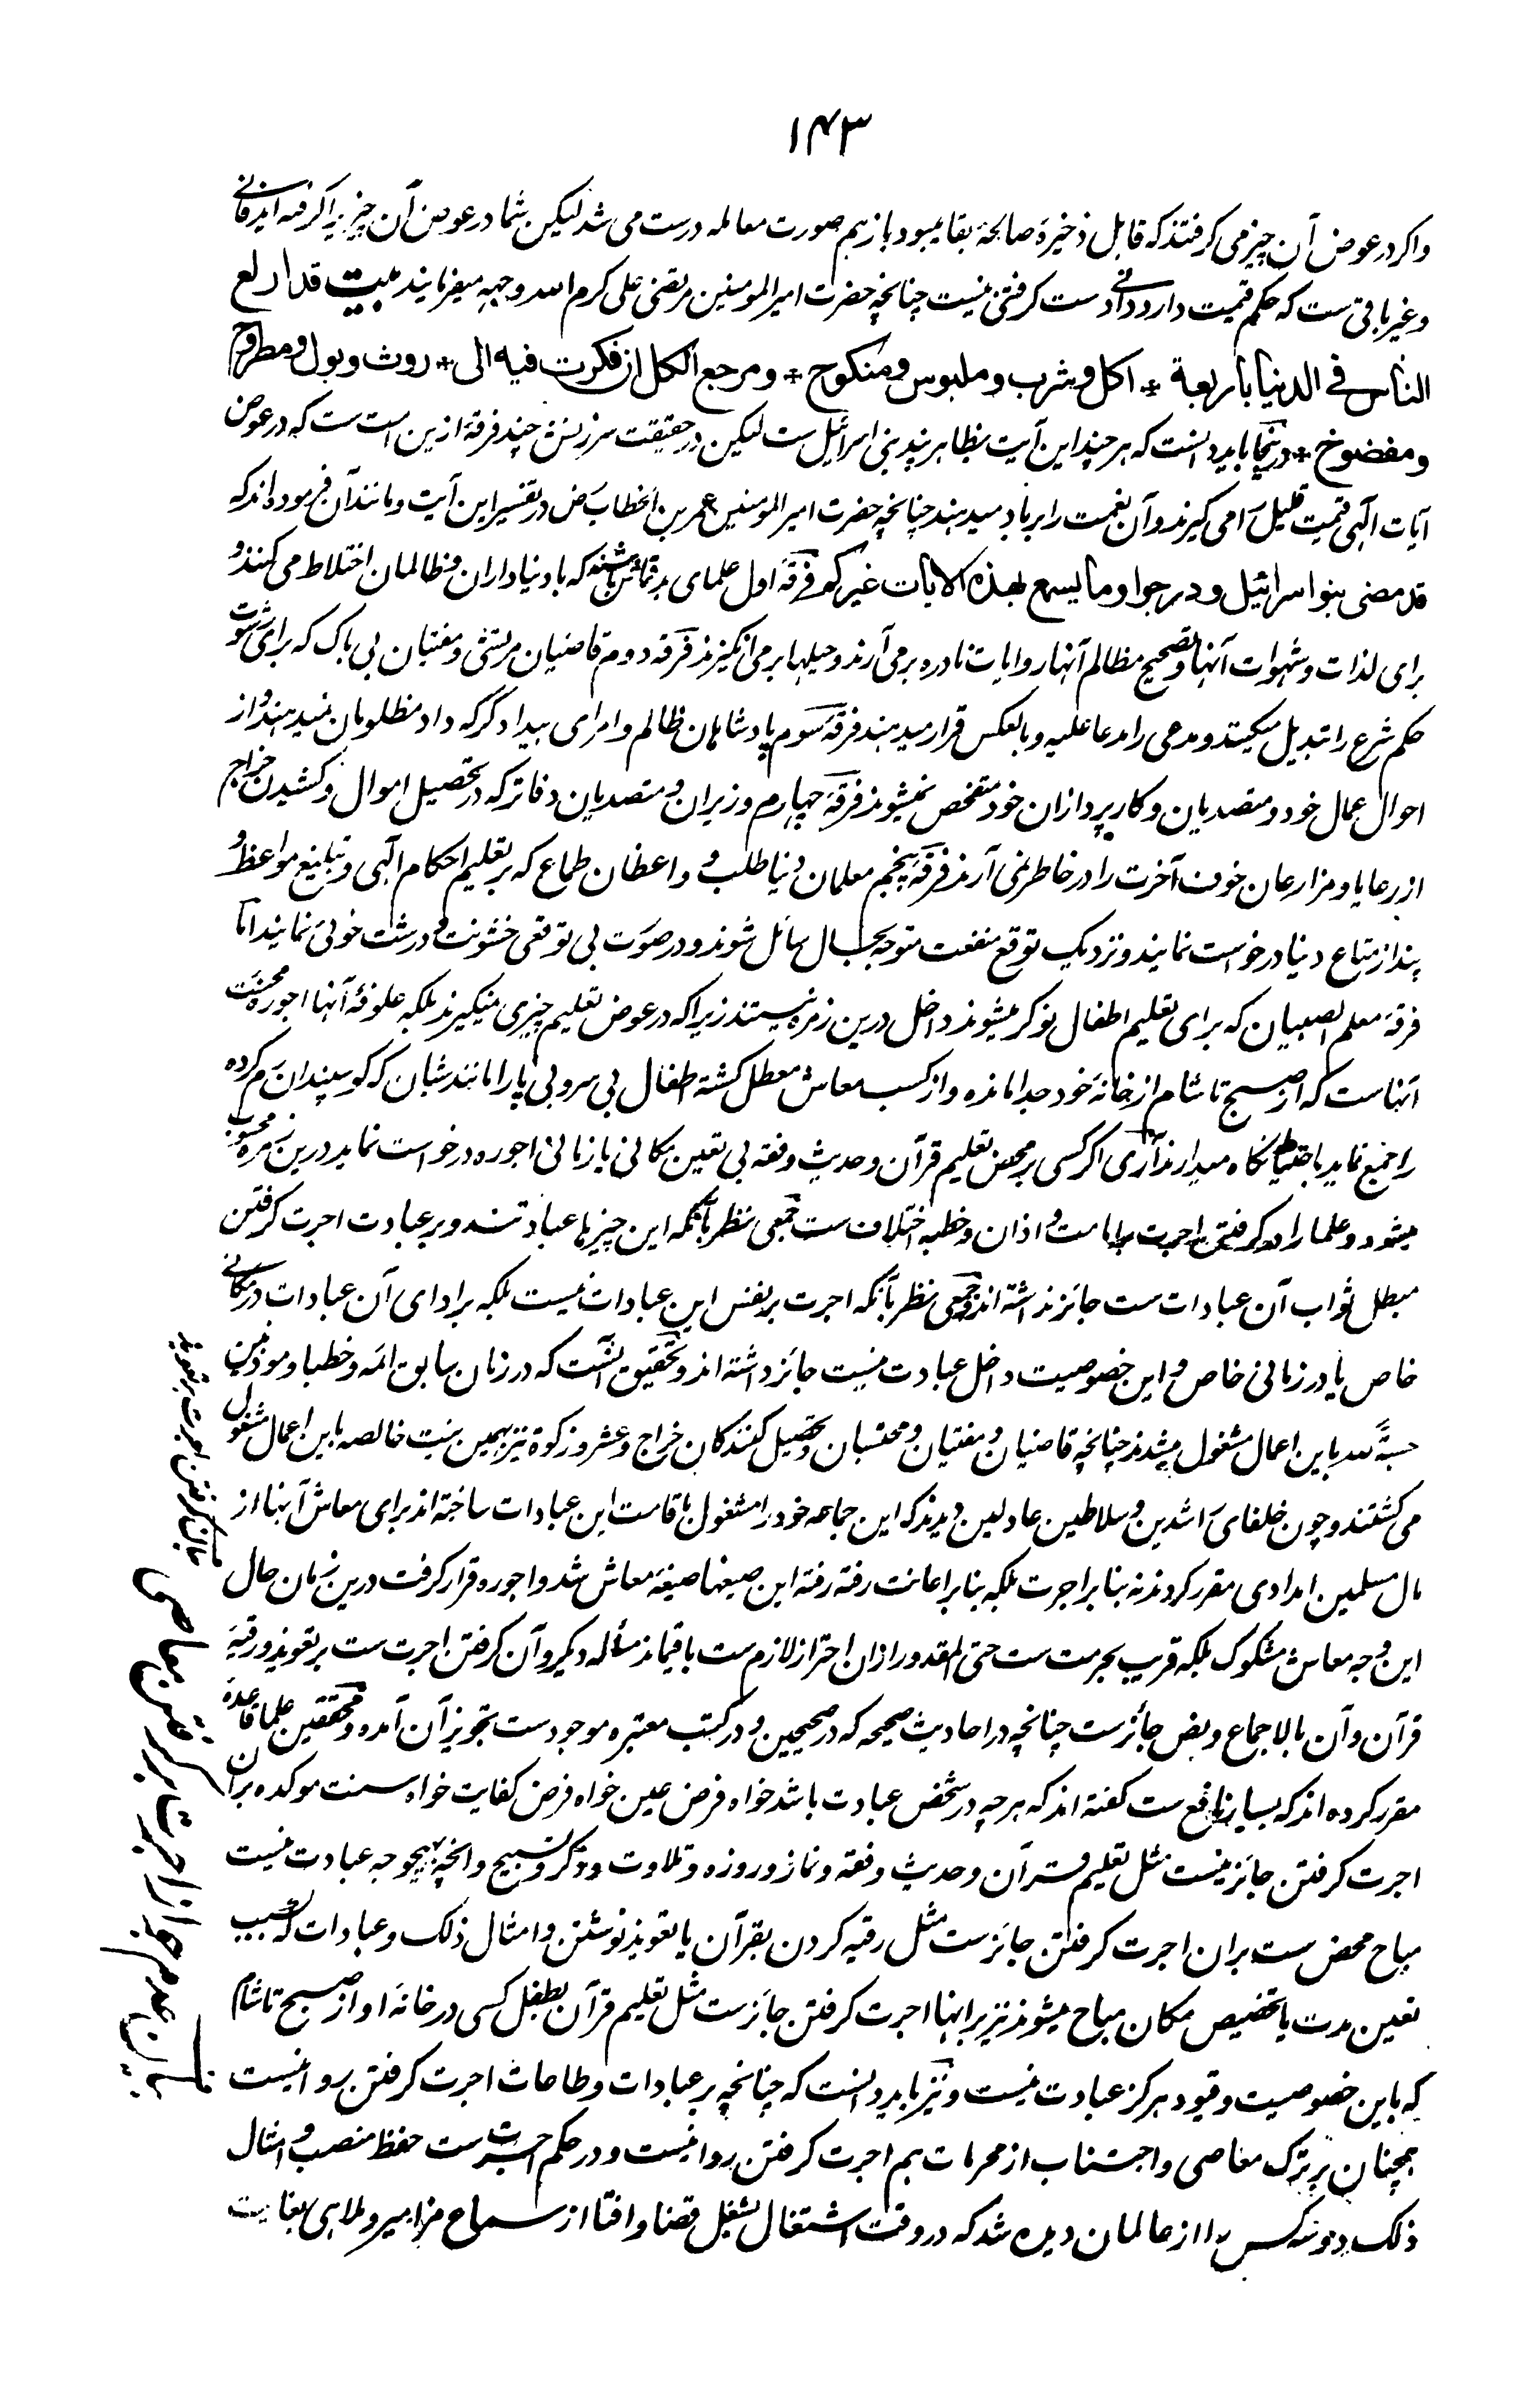 ۱۴۳
واکر در عوض آن چیز می کرفتند که قابل ذخیرهٔ صالحهٔ بقا میبود باز هم صورت معامله درست می شد لیکن شما در عوض آن چیزیرا کرفته اید فانی
وغیر باقی ست که حکم قمیت دارد و دست کرفتنی نیست چنانچه حضرت امیر المومنین مرتضی علی کرم الله وجهه میفرمایند بیت قد
الناس فی الدنیا باربعة * اکل وشرب وملبوس ومنکوح * ومرجع الکل ان فکرت فیه الی * روث وبول ومطروح
ومفضوخ * درینجا باید دانست که هر چند این آیت بظاهر پند بنی اسرائیل ست لیکن در حقیقت سرزنش چند فرقه ازین امت ست که در عوض
آیات الٰهی قمیت قلیل را می کیرند وآن نعمت را برباد میدهند چنانچه حضرت امیر المومنین عمر بن الخطاب رض در تفسیر این آیت ومانند آن فرموده اند که
قد مضی بنو اسرائیل ودرجوا وما یسمع بهذه الایات غیرکم فرقهٔ اول علمای بد قماش باشند که با دنیاداران وظالمان اختلاط می کنند و
برای لذات وشهوات آنها وتصحیح مظالم آنها روایات نادره برمی آرند وحیلها برمی انکیزند فرقه دوم قاضیان مرتشی ومفتیان بی باک که برای رشوت
حکم شرع را تبدیل میکنند ومدعی را مدعا علیه وبالعکس قرار میدهند فرقهٔ سوم پادشاهان ظالم وامرای بیدادکر که داد مظلومان نمیدهند واز
احوال عمال خود ومتصدیان وکارپردازان خود متفحص نمیشوند فرقهٔ چهارم وزیران ومتصدیان دفاتر که در تحصیل اموال وکشیدن خراج
از رعایا ومزارعان خوف آخرت را در خاطر نمی آرند فرقهٔ پنجم معلمان دنیا طلب و واعظان طماع که بر تعلیم احکام الٰهی وتبلیغ مواعظ و
پند از متاع دنیا درخواست نمایند ونزدیک توقع منفعت متوجه بحال سائل شوند ودر صورت بی توقعی خشونت ودرشت خوئی نمایند اما
فرقهٔ معلم الصبیان که برای تعلیم اطفال نوکر میشوند داخل درین زمره نیستند زیرا که در عوض تعلیم چیزی نمیکیرند بلکه علوفهٔ آنها اجورهٔ محنت
آنهاست که از صبح تا شام از خانهٔ خود جدا مانده واز کسب معاش معطل کشته اطفال بی سر وبی پا را مانند شبان که کوسپندان رم کرده
را جمع نماید باحتیاط نکاه میدارند آری اکر کسی بر محض تعلیم قرآن وحدیث وفقه بی تعین مکانی یا زمانی اجوره درخواست نماید درین زمره محسوب
میشود وعلما را در کرفتن اجرت بر امامت واذان وخطبه اختلاف ست جمعی نظر بآنکه این چیزها عبادتند وبر عبادت اجرت کرفتن
مبطل ثواب آن عبادات ست جائز نداشته اند وجمعی نظر بآنکه اجرت بر نفس این عبادات نیست بلکه بر ادای آن عبادات در مکانی
خاص یا در زمانی خاص واین خصوصیت داخل عبادت نیست جائز داشته اند وتحقیق آنست که در زمان سابق ائمه وخطبا وموذنین
حسبةً لله باین اعمال مشغول میشدند چنانچه قاضیان ومفتیان ومحتسبان وتحصیل کنندکان خراج وعشر وزکوة نیز بهمین نیت خالصه باین اعمال مشغول
می کشتند وچون خلفای راشدین وسلاطین عادلین دیدند که این جماعه خود را مشغول باقامت این عبادات ساخته اند برای معاش آنها از
مال مسلمین امدادی مقرر کردند نه بنابر اجرت بلکه بنابر اعانت رفته رفته این صیغها صیغهٔ معاش شد واجوره قرار کرفت درین زمان حال
این وجه معاش مشکوک بلکه قریب بحرمت ست حتی المقدور ازان احتراز لازم ست باقیماند مسأله دیکر وآن کرفتن اجرت ست بر تعویذ ورقیهٔ
قرآن وآن بالاجماع وبض جائزست چنانچه در احادیث صحیحه که در صحیحین ودر کتب معتبره موجودست تجویز آن آمده ومحققین علما قاعدهٔ
مقرر کرده اند که بسیار نافع ست کفته اند که هر چه در شخص عبادت باشد خواه فرض عین خواه فرض کفایت خواه سنت موکده بران
اجرت کرفتن جائز نیست مثل تعلیم قرآن وحدیث وفقه ونماز وروزه وتلاوت وذکر وتسبیح وانچه بهیچوجه عبادت نیست
مباح محض ست بران اجرت کرفتن جائزست مثل رقیه کردن بقرآن یا تعویذ نوشتن وامثال ذلک وعبادات که بسبب
تعین مدت یا تخصیص مکان مباح میشوند نیز بر اینها اجرت کرفتن جائزست مثل تعلیم قرآن بطفل کسی در خانهٔ او از صبح تا شام
که باین خصوصیت وقیود هرکز عبادت نیست ونیز باید دانست که چنانچه بر عبادات وطاعات اجرت کرفتن روا نیست
همچنان بر ترک معاصی واجتناب از محرمات هم اجرت کرفتن روا نیست ودر حکم اجرت ست حفظ منصب وامثال
ذلک دو سه کس را از عالمان دیده شد که در وقت اشتغال بشغل قضا وافتا از سماع مزامیر وملاهی بغایت
بیان کرفتن اجرت بر تعویذ
بیان عدم جواز اجرت بر ترک معاصی